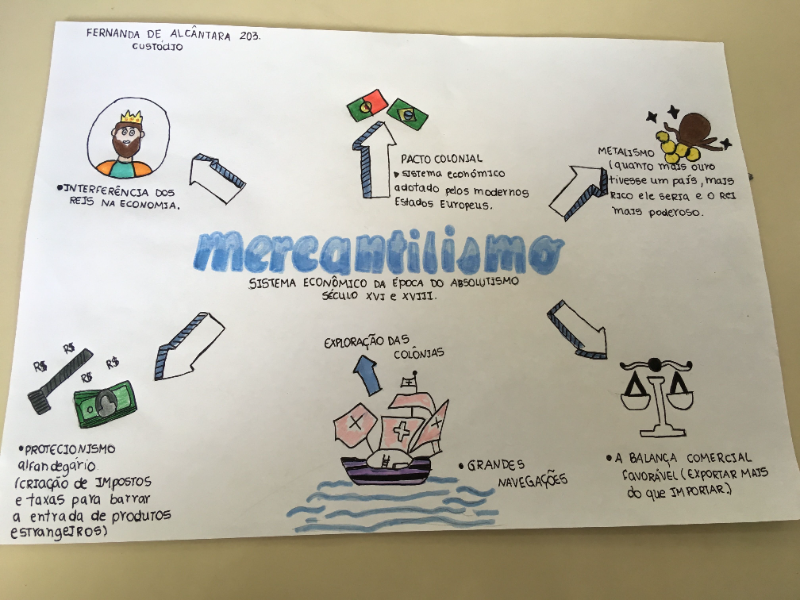 FERNANDA DE ALCÂNTARA 203.
CUSTÓDIO
• INTERFERÊNCIA DOS
REIS NA ECONOMIA.
PACTO COLONIAL
• SISTEMA ECONÔMICO
adotado pelos modernos
Estados Europeus.
METALISMO
(quanto mais ouro
tivesse um país, mais
RICO ele SERIA e O REI
mais poderoso.
mercantilismo
SISTEMA ECONÔMICO DA ÉPOCA DO ABSOLUTISMO
SÉCULO XVI e XVIII.
EXPLORAÇÃO DAS
COLÔNIAS
R$ R$
R$ R$
• PROTECIONISMO
alfandegário
(CRIAÇÃO DE IMPOSTOS
e taxas para barrar
a entrada de produtos
estrangeIROS)
• GRANDES
NAVEGAÇÕES
• A BALANÇA COMERCIAL
FAVORÁVEL (EXPORTAR MAIS
do que IMPORTAR.)